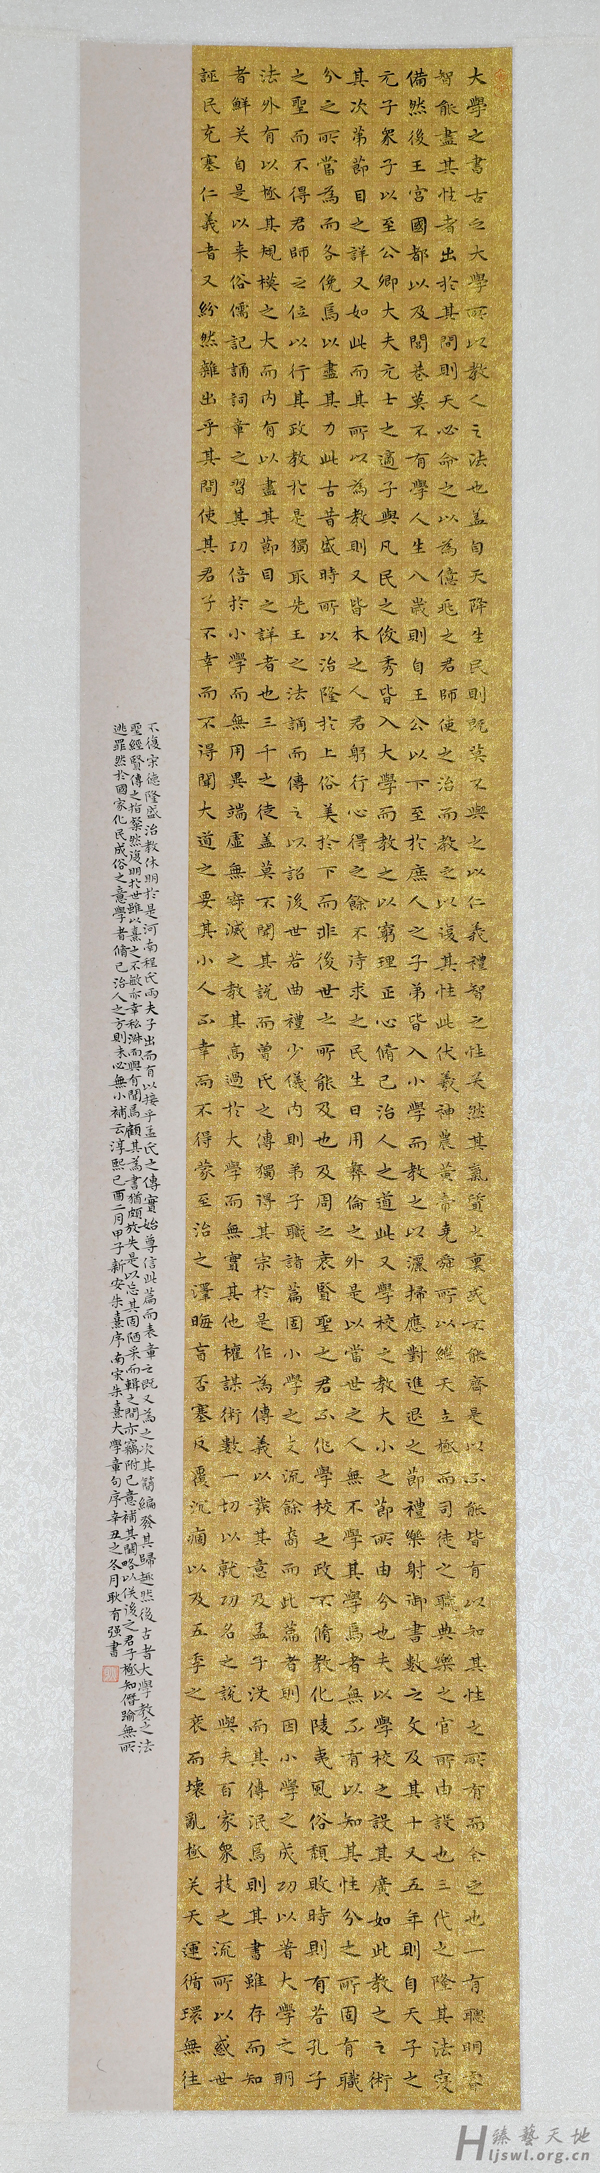 大學之書古之大學所以教人之法也蓋自天降生民則既莫不與之以仁義禮智之性矣然其氣質之稟或不能齊是以不能皆有以知其性之所有而全之也一有聰明睿
智能盡其性者出於其間則天必命之以為億兆之君師使之治而教之以復其性此伏羲神農黃帝堯舜所以繼天立極而司徒之職典樂之官所由設也三代之隆其法寖
備然後王宮國都以及閭巷莫不有學人生八歲則自王公以下至於庶人之子弟皆入小學而教之以灑掃應對進退之節禮樂射御書數之文及其十又五年則自天子之
元子眾子以至公卿大夫元士之適子與凡民之俊秀皆入大學而教之以窮理正心脩己治人之道此又學校之教大小之節所由分也夫以學校之設其廣如此教之之術
其次第節目之詳又如此而其所以為教則又皆本之人君躬行心得之餘不待求之民生日用彝倫之外是以當世之人無不學其學焉者無不有以知其性分之所固有職
分之所當為而各俛焉以盡其力此古昔盛時所以治隆於上俗美於下而非後世之所能及也及周之衰賢聖之君不作學校之政不脩教化陵夷風俗頹敗時則有若孔子
之聖而不得君師之位以行其政教於是獨取先王之法誦而傳之以詔後世若曲禮少儀內則弟子職諸篇固小學之支流餘裔而此篇者則因小學之成功以著大學之明
法外有以極其規模之大而內有以盡其節目之詳者也三千之徒蓋莫不聞其說而曾氏之傳獨得其宗於是作為傳義以發其意及孟子沒而其傳泯焉則其書雖存而知
者鮮矣自是以來俗儒記誦詞章之習其功倍於小學而無用異端虛無寂滅之教其高過於大學而無實其他權謀術數一切以就功名之說與夫百家眾技之流所以惑世
誣民充塞仁義者又紛然雜出乎其間使其君子不幸而不得聞大道之要其小人不幸而不得蒙至治之澤晦盲否塞反覆沉痼以及五季之衰而壞亂極矣天運循環無往
不復宋德隆盛治教休明於是河南程氏兩夫子出而有以接乎孟氏之傳實始尊信此篇而表章之既又為之次其簡編發其歸趣然後古者大學教之法
聖經賢傳之指粲然復明於世雖以熹之不敏亦幸私淑而與有聞焉顧其為書猶頗放失是以忘其固陋采而輯之間亦竊附己意補其闕略以俟後之君子極知僭踰無所
逃罪然於國家化民成俗之意學者脩己治人之方則未必無小補云淳熙己酉二月甲子新安朱熹序南宋朱熹大學章句序辛丑之冬月耿有强書
臻藝天地
Hljswl.org.cn